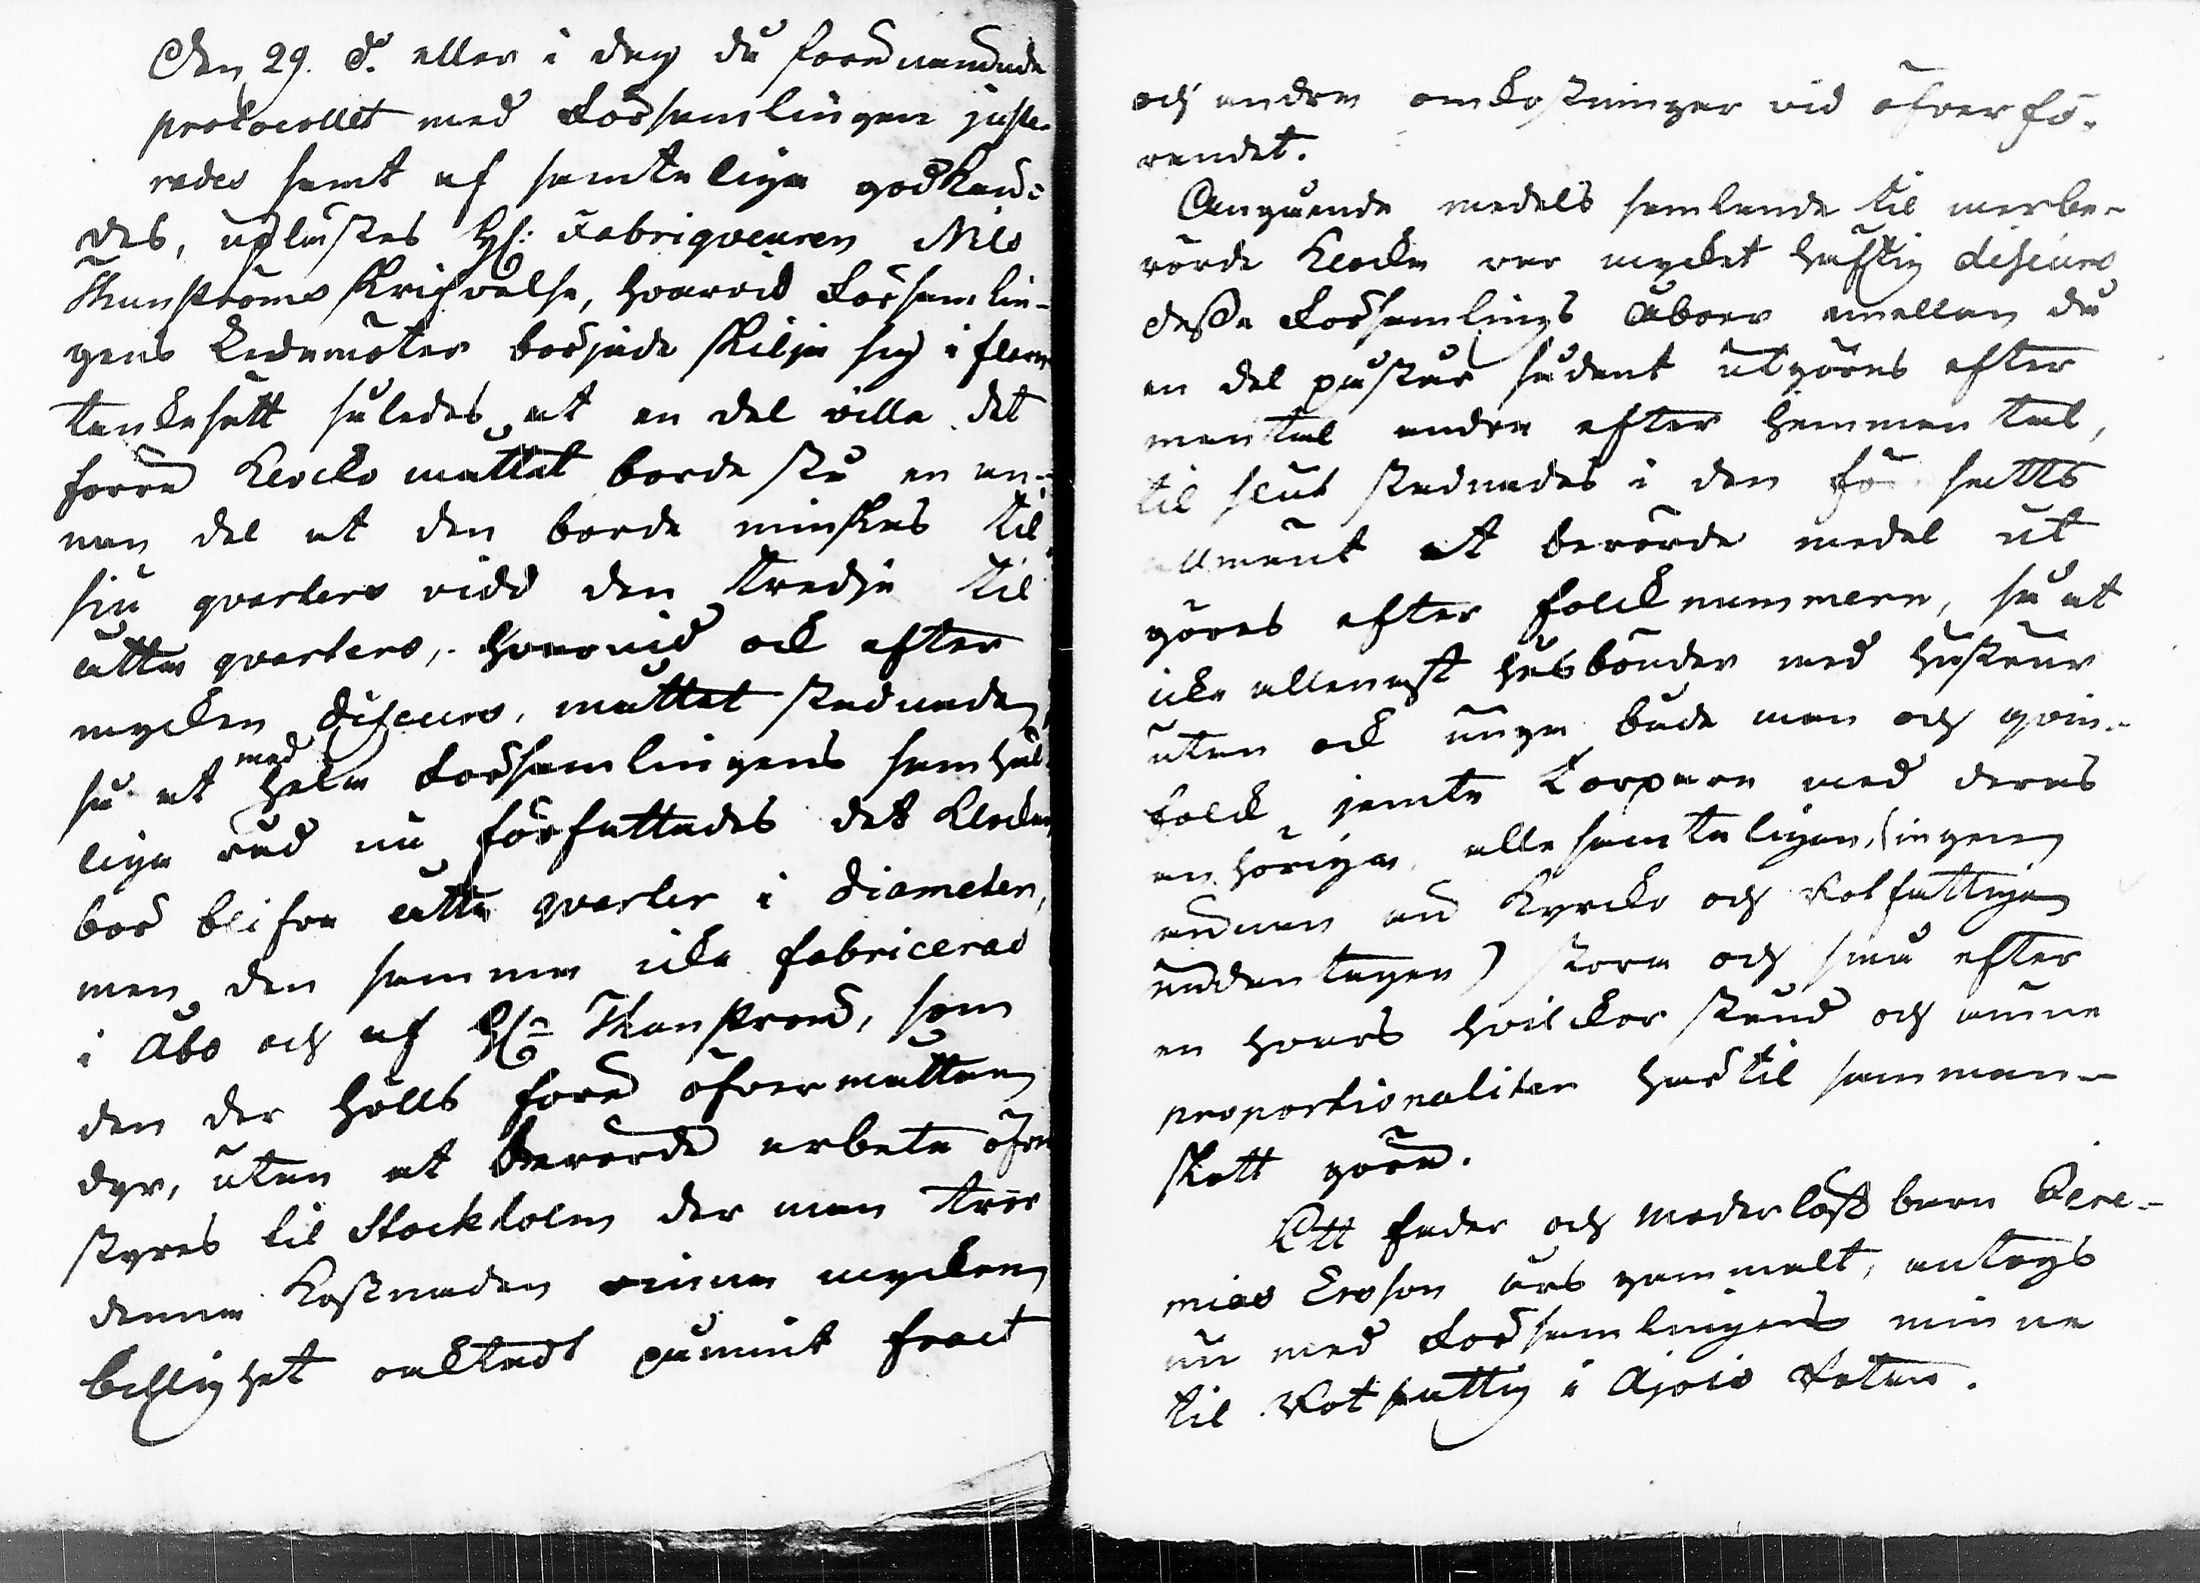 Den 29. d:o eller i dag då förenämnde
protocollet med Församlingen juste-
rades samt af samtelige godkän-
des, uplästes H: Fabriqveuren Nils
Thunströms Skrifvelse, hvarvid Församlin-
gens Ledamöter började skilja sig i flere
tankesätt således at en del ville det
förra Klocko måttet borde stå en an-
nan del at den borde minskas til
siu qvarters vidd den tredje til
åtta qvarters, hvarvid ock efter
mycken discurs, måttet stadnade
så at med hela Församlingens samhäl-
liga råd nu författades det Klockan
bör blifva åtta qvarter i diameter,
men den samma icke fabriceras
i Åbo och af H:r Thunström, som
den der hölls före öfvermåttan
dyr, utan at berörde arbete öfver
styres til Stockholm der man tror
denna kostnaden vinna mycken
billighet oaktadt påmint fract
och andra omkostningar vid öfverfö-
randet.
Angående medels samlande til merbe-
rörde Klocka var mycket häftig discurs
desse Församlings Åboer emellan då
en del påstår sådant utgöras efter
mantal andra efter hemmantal,
til slut stadnades i den för satts
allment at berörde medel ut
göras efter folcknummern, så at
icke allenast husbönder med hustrur
utan ock unga både man och qvin-
folck jemte Torpare med deras
anhöriga alle samteligen, (ingen
annan än Kyrcko och Rotfattigen
undantagen) stora och små efter
en hvars hvilckor stånd och ämne
proportionaliter härtil samman-
skott göra.
Ett fader och moderlöst barn Jere-
mias Ersson års gammalt, antogs
nu med Församlingens minne
til Rotfattig i Ajois Roten.